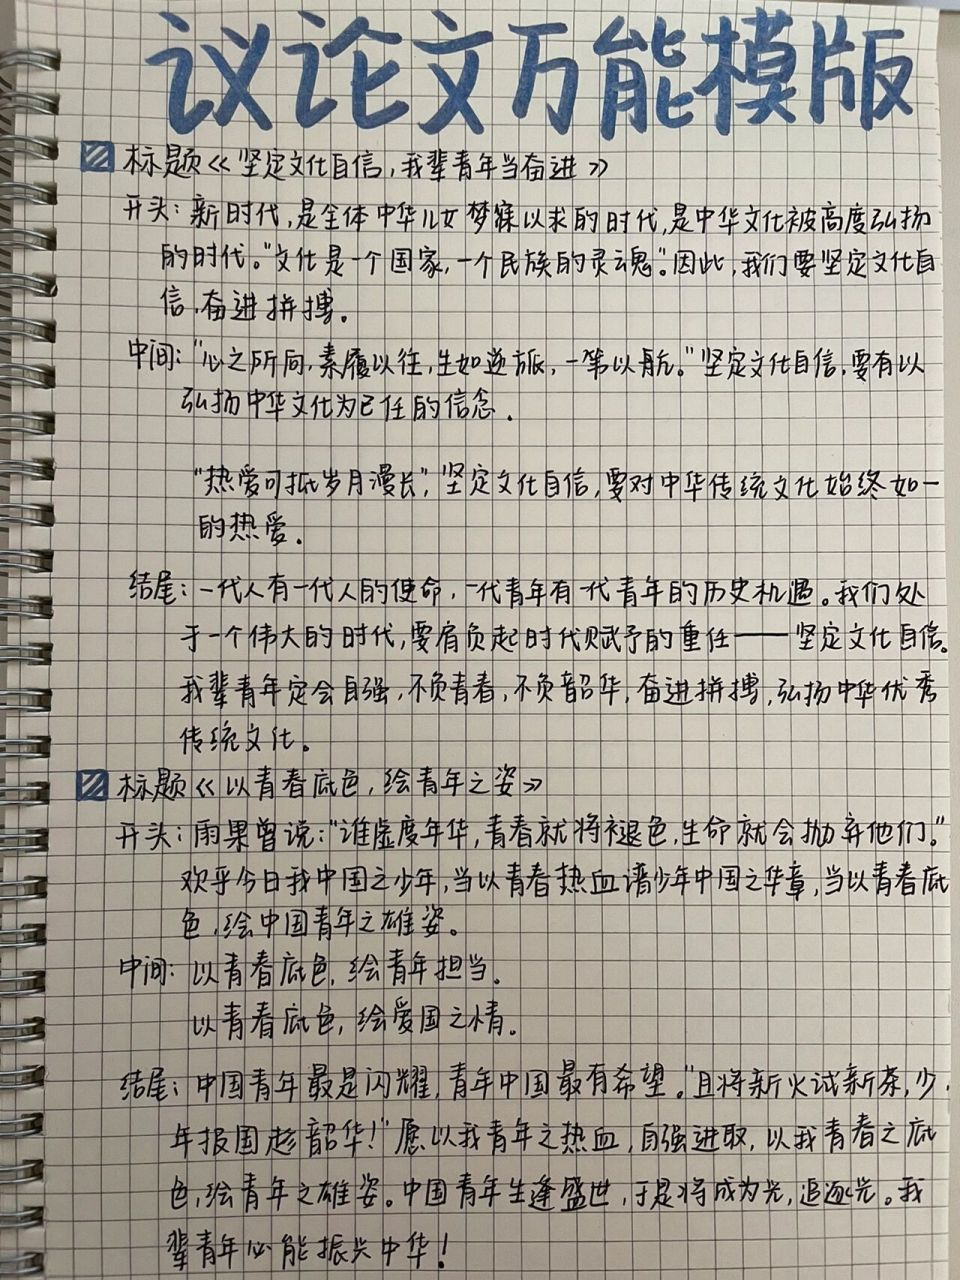 议论文万能模版
标题《坚定文化自信,我辈青年当奋进》
开头:新时代,是全体中华儿女梦寐以求的时代,是中华文化被高度弘扬
的时代。"文化是一个国家,一个民族的灵魂"。因此,我们要坚定文化自
信,奋进拼搏。
中间:"心之所向,素履以往,生如逆旅,一苇以航。"坚定文化自信,要有以
弘扬中华文化为己任的信念.
"热爱可抵岁月漫长",坚定文化自信,要对中华传统文化始终如一
的热爱.
结尾:一代人有一代人的使命,一代青年有一代青年的历史机遇。我们处
于一个伟大的时代,要肩负起时代赋予的重任——坚定文化自信。
我辈青年定会自强,不负青春,不负韶华,奋进拼搏,弘扬中华优秀
传统文化。
标题《以青春底色,绘青年之姿》
开头:雨果曾说:"谁虚度年华,青春就将褪色,生命就会抛弃他们."
欢乎今日我中国之少年,当以青春热血谱少年中国之华章,当以青春底
色,绘中国青年之雄姿。
中间:以青春底色,绘青年担当.
以青春底色,绘爱国之情.
结尾:中国青年最是闪耀,青年中国最有希望."且将新火试新茶,少
年报国趁韶华!"愿以我青年之热血,自强进取,以我青春之底
色,绘青年之雄姿。中国青年生逢盛世,于是将成为光,追逐光。我
辈青年必能振兴中华!